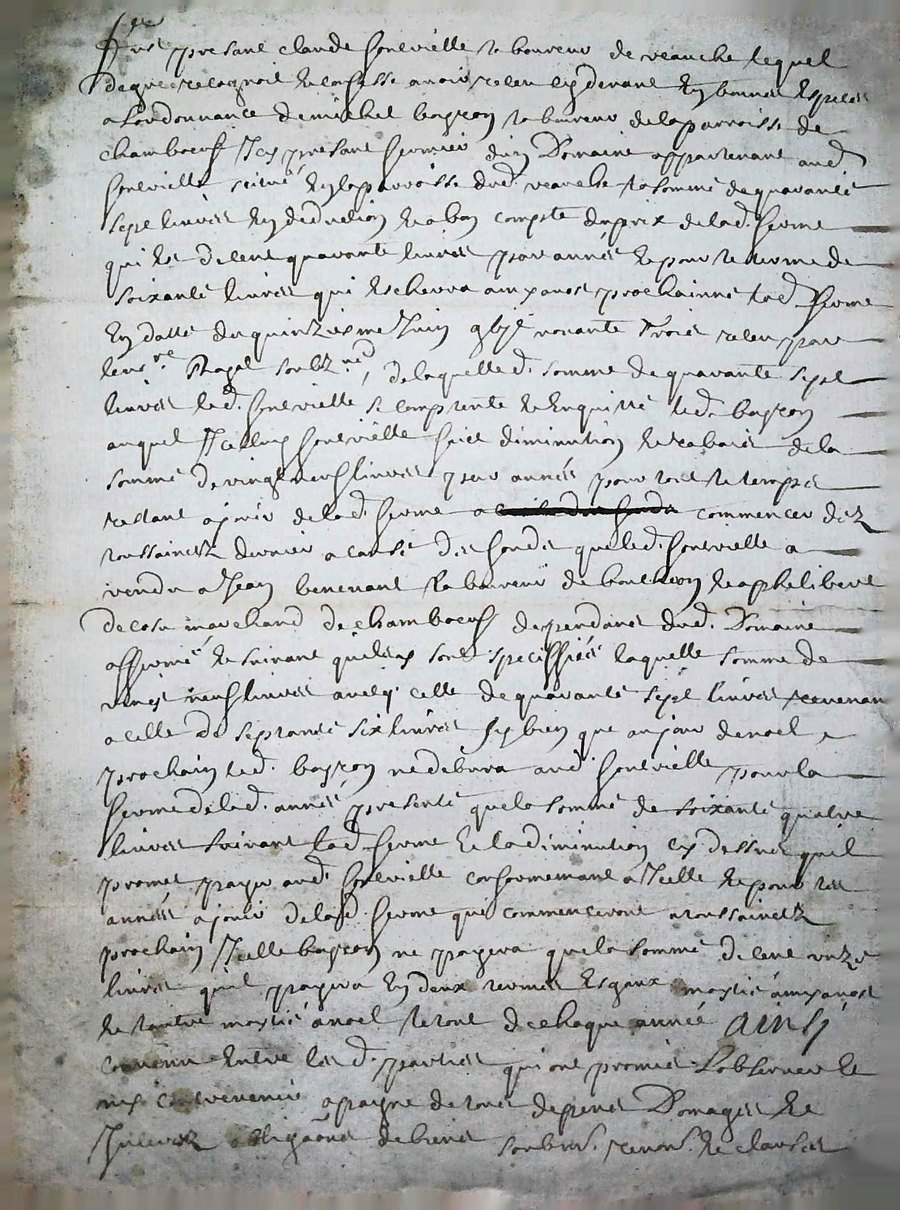 presant claude fontvielle laboureur de veauche lequel
de gre recognoit et confesse avoir receu cy devant en bonnes especes
a lordonnance de michel boyron laboureur de la parroisse de
chamboeuf Icy presant fermier dun Domaine appartenant aud
fontvielle scitué en la parroisse dud. veauche la somme de quarante
sept livres en deduction et a bon compte du prix de lad. ferme
qui est de cent quarante livres par année et pour le terme de
soixante livres qui escherra aux prochaine lad. ferme
en datte du quinziesme Juin nonante trois receu par
Ragel soubz.né, de laquelle d. somme de quarante sept
livres led. fontvielle se comptente et en quitte led. boyron
auquel Icelluy fontvielle faict diminution et rabais de la
somme de vingt neuf livres par année pour tout le temps
restant a jouir de lad. ferme a commencer dez
toussainctz dernier a cause des fonds que led. fontvielle a
vendu a Jean benevant laboureur de boutheon et a philibert
decosu marchand de chamboeuf dependans dud. Domaine
affermé et suivant quileux sont speciffiés laquelle somme de
vingt neuf livres avecq. celle de quarante sept livres revenan
a celle de septante six livres sy bien que au jour de noel
prochain led. boyron ne debvra aud. fontvielle pour la
ferme de lad. année presente que la somme de soixante quatre
livres suivant lad. ferme et la diminution cy dessus quil
promet payer aud. fontvielle conformemant a Icelle et pour les
années a jouir de lad. ferme qui commenceront a toussainctz
prochain Icelle boyron ne payera que la somme de cent unze
livres quil payera en deux termes esgaux moytié
et lautre moytié a noel le tout de chaque année ainsy
convenu entre les d. parties qui ont promis lobserver et
ny contrevenir a payne de tous despens Domages et
Interestz obligaons de biens soubm. renon. et clauses